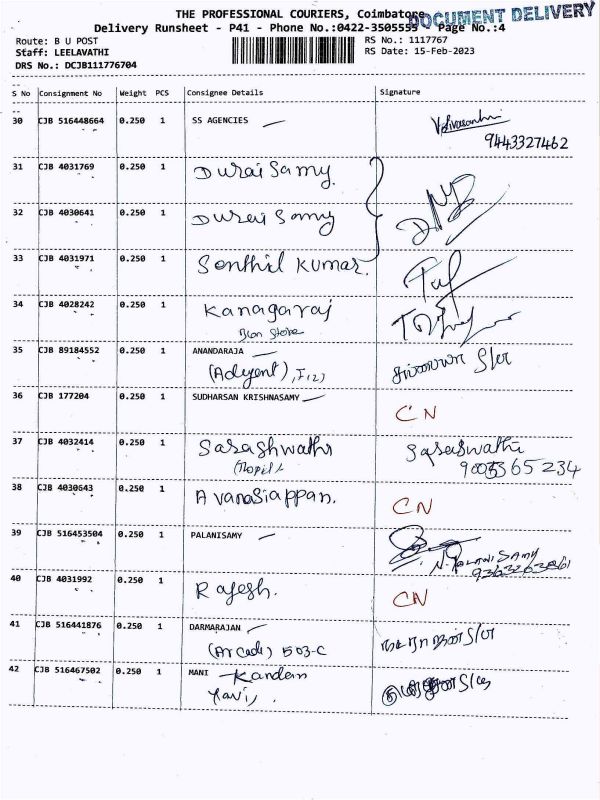 THE PROFESSIONAL COURIERS, Coimbatore
DOCUMENT DELIVERY
Delivery Runsheet - P41 - Phone No.:0422-3505555 Page No.:4
Route: B U POST
RS No.: 1117767
Staff: LEELAVATHI
RS Date: 15-Feb-2023
DRS No.: DCJB111776704
S No Consignment No Weight PCS Consignee Details Signature
30 CJB 516448664 0.250 1 SS AGENCIES
9443327462
31 CJB 4031769 0.250 1 Durai Samy
32 CJB 4030641 0.250 1 Durai Samy
33 CJB 4031971 0.250 1 Senthil Kumar.
34 CJB 4028242 0.250 1 Kanagaraj
Store
35 CJB 89184552 0.250 1 ANANDARAJA
36 CJB 177204 0.250 1 SUDHARSAN KRISHNASAMY CN
37 CJB 4032414 0.250 1 Sarashwathi Saraswathi
38 CJB 4030643 0.250 1 Avanasiappan. CN
39 CJB 516453504 0.250 1 PALANISAMY
N. PALANI SAMY
40 CJB 4031992 0.250 1 Rajesh. CN
41 CJB 516441876 0.250 1 DARMARAJAN
(Arcade) 503-C
42 CJB 516467502 0.250 1 MANI